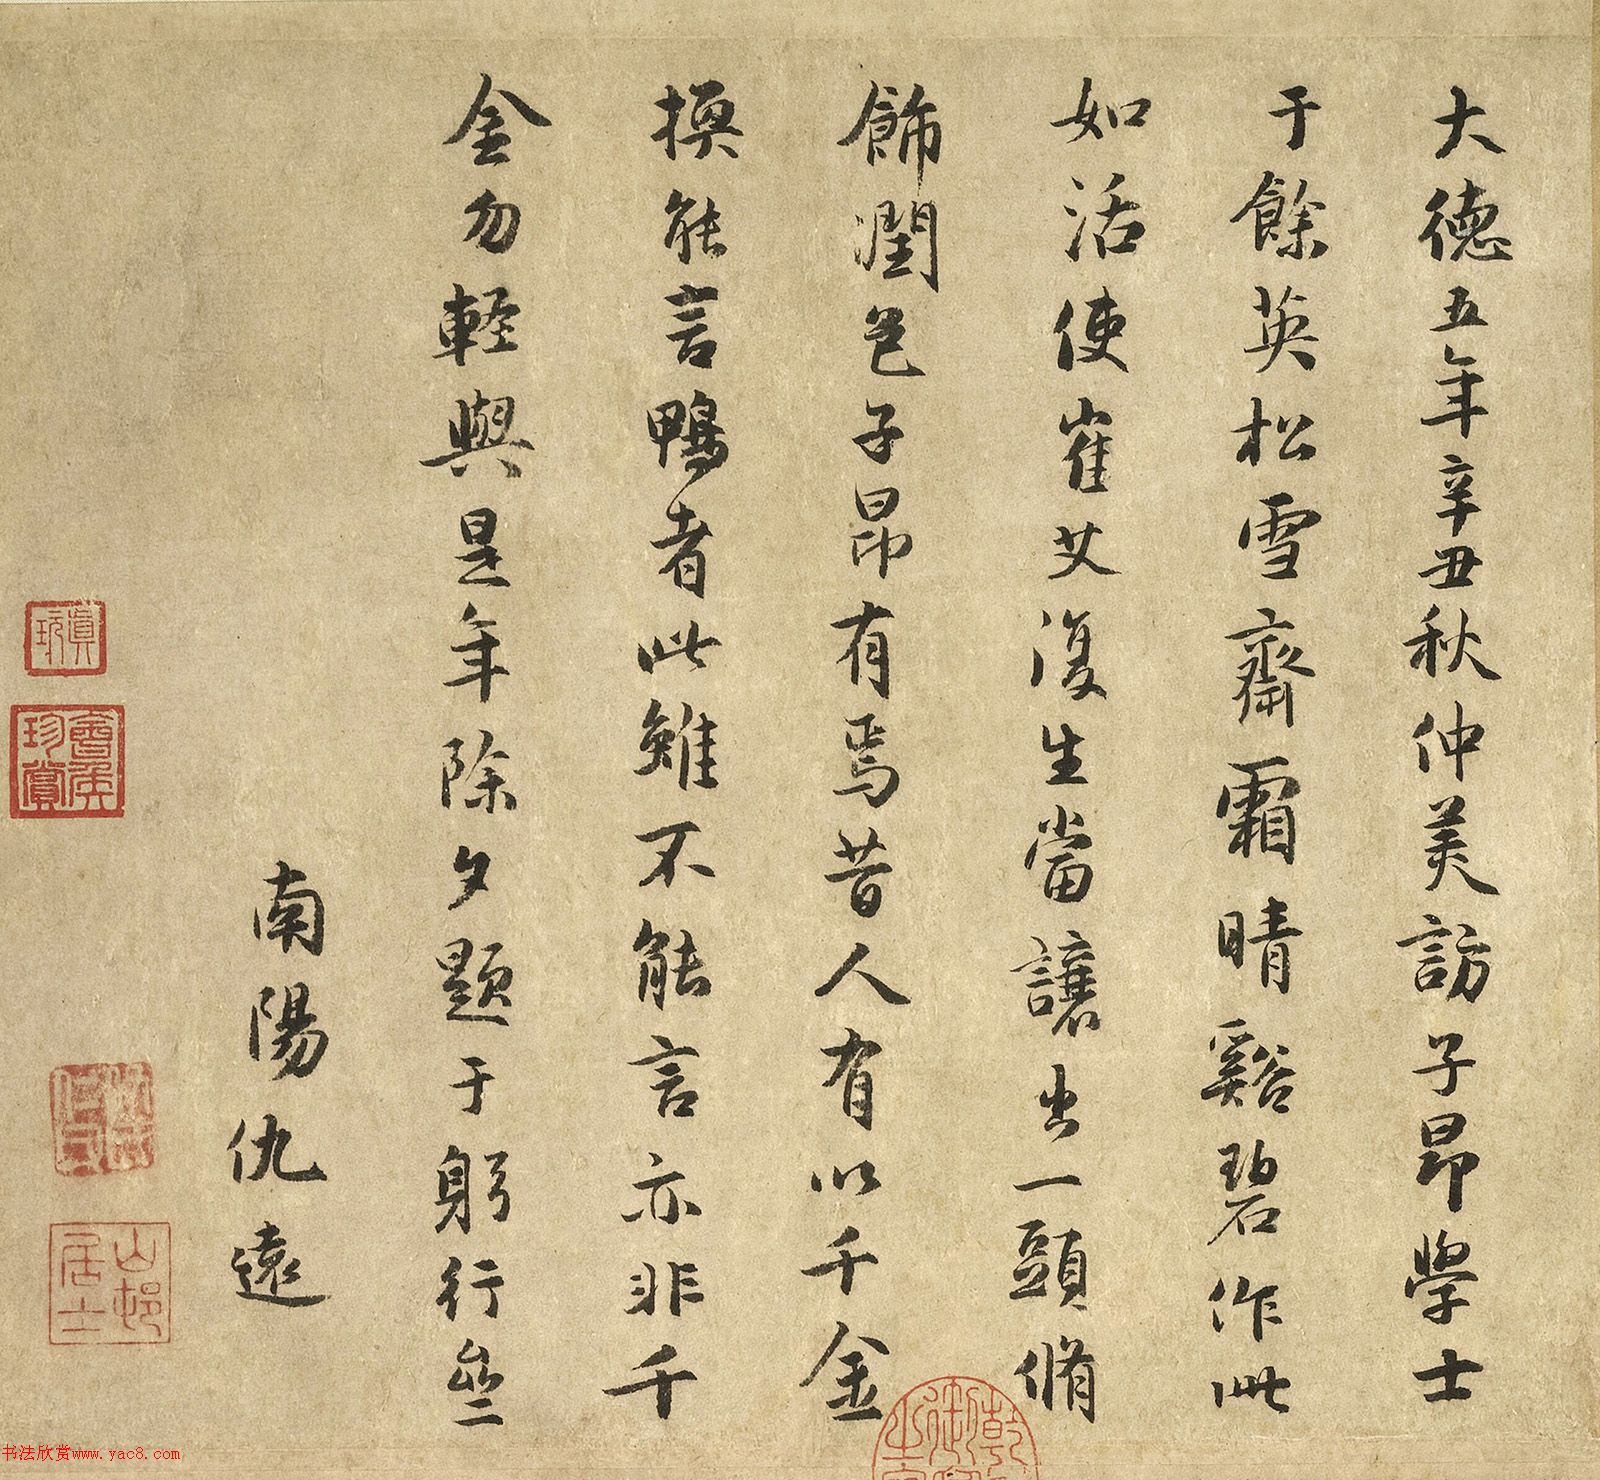 大德五年辛丑秋仲美訪子昂學士
于餘英松雪齋霜晴谿碧作此
如活使崔艾復生當讓出一頭脩
飾潤色子昂有焉昔人有以千金
換能言鴨者此雖不能言亦非千
金勿輕與是年除夕題于躬行亝
南陽仇遠
真玩
會侯珍賞
山邨居士
书法欣赏www.yac8.com